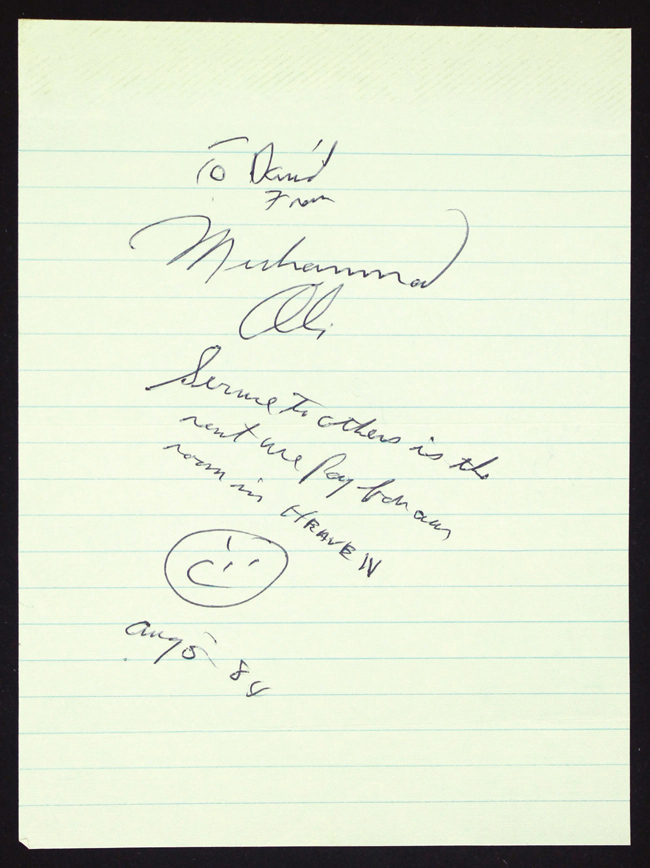 To David
From
Muhammad
Ali
Service to others is the
rent we Pay for our
room in HEAVEN
Aug 5 84